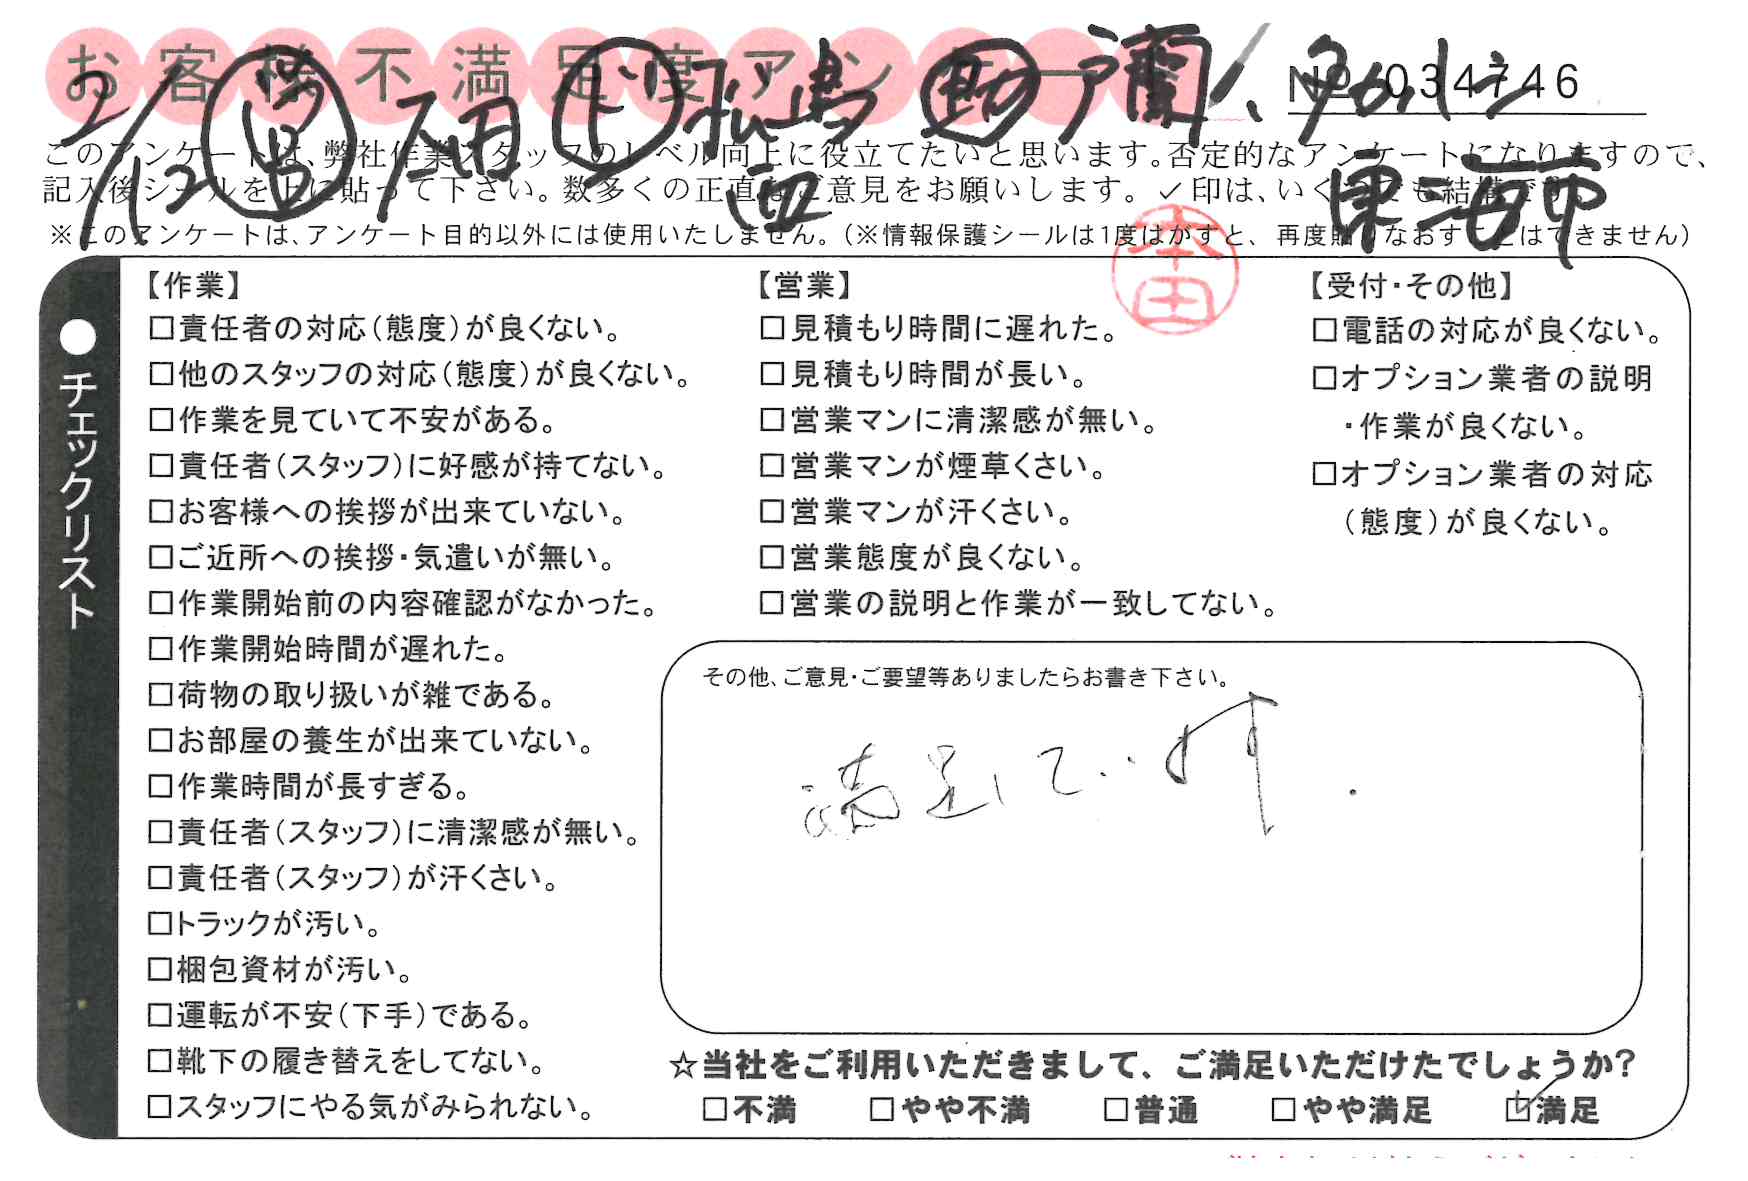 お客様不満足度アンケート
№ 034746
2/12
松島
東海市
このアンケートは、弊社作業スタッフのレベル向上に役立てたいと思います。否定的なアンケートになりますので、
記入後シールを上に貼って下さい。数多くの正直なご意見をお願いします。✓印は、いくつでも結構です。
※このアンケートは、アンケート目的以外には使用いたしません。（※情報保護シールは1度はがすと、再度貼りなおすことはできません）
本田
●チェックリスト
【作業】
□責任者の対応（態度）が良くない。
□他のスタッフの対応（態度）が良くない。
□作業を見ていて不安がある。
□責任者（スタッフ）に好感が持てない。
□お客様への挨拶が出来ていない。
□ご近所への挨拶・気遣いが無い。
□作業開始前の内容確認がなかった。
□作業開始時間が遅れた。
□荷物の取り扱いが雑である。
□お部屋の養生が出来ていない。
□作業時間が長すぎる。
□責任者（スタッフ）に清潔感が無い。
□責任者（スタッフ）が汗くさい。
□トラックが汚い。
□梱包資材が汚い。
□運転が不安（下手）である。
□靴下の履き替えをしてない。
□スタッフにやる気がみられない。
【営業】
□見積もり時間に遅れた。
□見積もり時間が長い。
□営業マンに清潔感が無い。
□営業マンが煙草くさい。
□営業マンが汗くさい。
□営業態度が良くない。
□営業の説明と作業が一致してない。
【受付・その他】
□電話の対応が良くない。
□オプション業者の説明
・作業が良くない。
□オプション業者の対応
（態度）が良くない。
その他、ご意見・ご要望等ありましたらお書き下さい。
満足しています.
☆当社をご利用いただきまして、ご満足いただけたでしょうか?
□不満 □やや不満 □普通 □やや満足 ☑満足